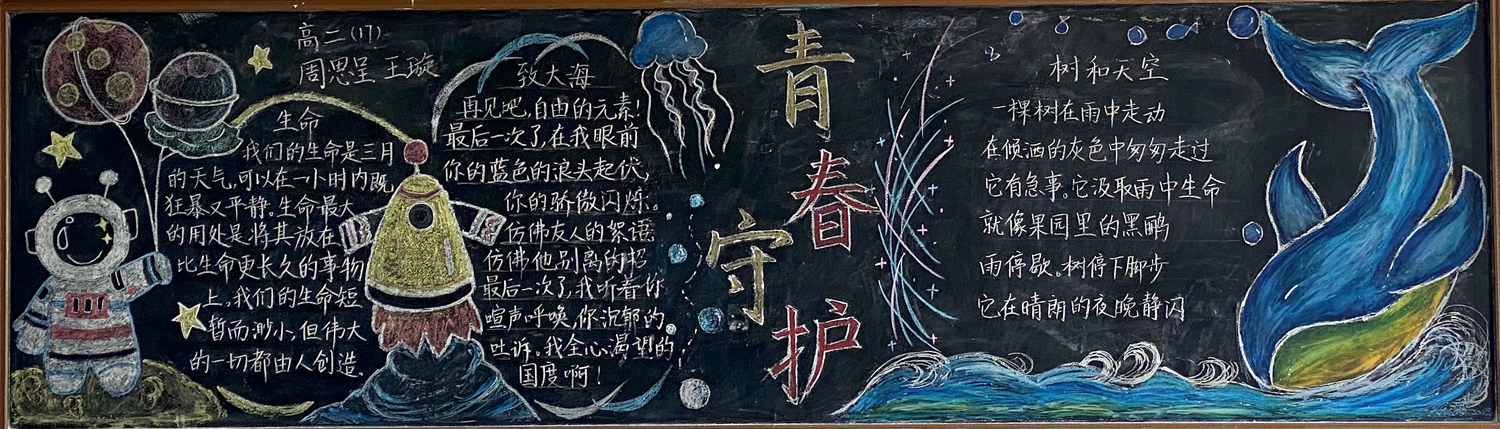 高二(17)
周思呈 王璇
生命
我们的生命是三月
的天气,可以在一小时内既
狂暴又平静。生命最大
的用处是将其放在
比生命更长久的事物
上。我们的生命短
暂而渺小,但伟大
的一切都由人创造。
致大海
再见吧,自由的元素!
最后一次了,在我眼前
你的蓝色的浪头起伏,
你的骄傲闪烁。
仿佛友人的絮语
仿佛他别离的招
最后一次了,我听着你
喧声呼唤,你沉郁的
吐诉。我全心渴望的
国度啊!
青春
守护
树和天空
一棵树在雨中走动
在倾洒的灰色中匆匆走过
它有急事。它汲取雨中生命
就像果园里的黑鹂
雨停歇。树停下脚步
它在晴朗的夜晚静闪